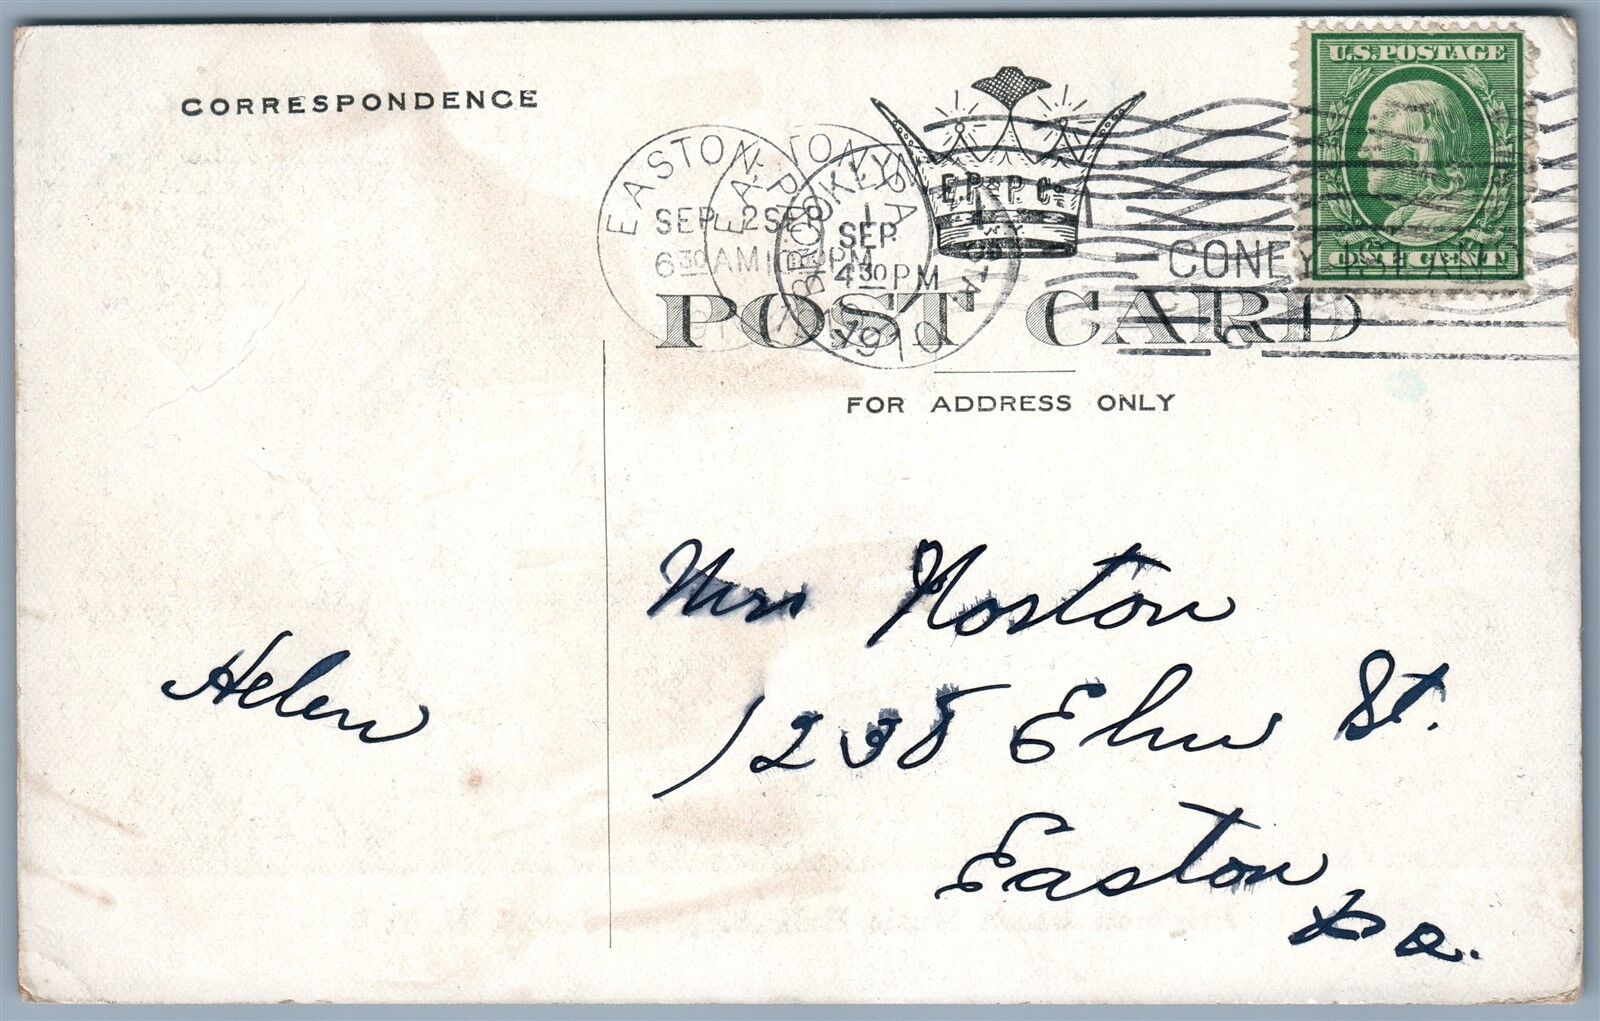 CORRESPONDENCE
E.P.&P. Co.
U.S. POSTAGE
ONE CENT
EASTON, PA
SEP 2
6 30 AM
EASTON, PA
SEP 1
PM
BROOKLYN
SEP 1
4 30 PM
1910
STA
CONEY ISLAND
POST CARD
FOR ADDRESS ONLY
Mrs Noston
1238 Elm St.
Easton
Pa.
Helen